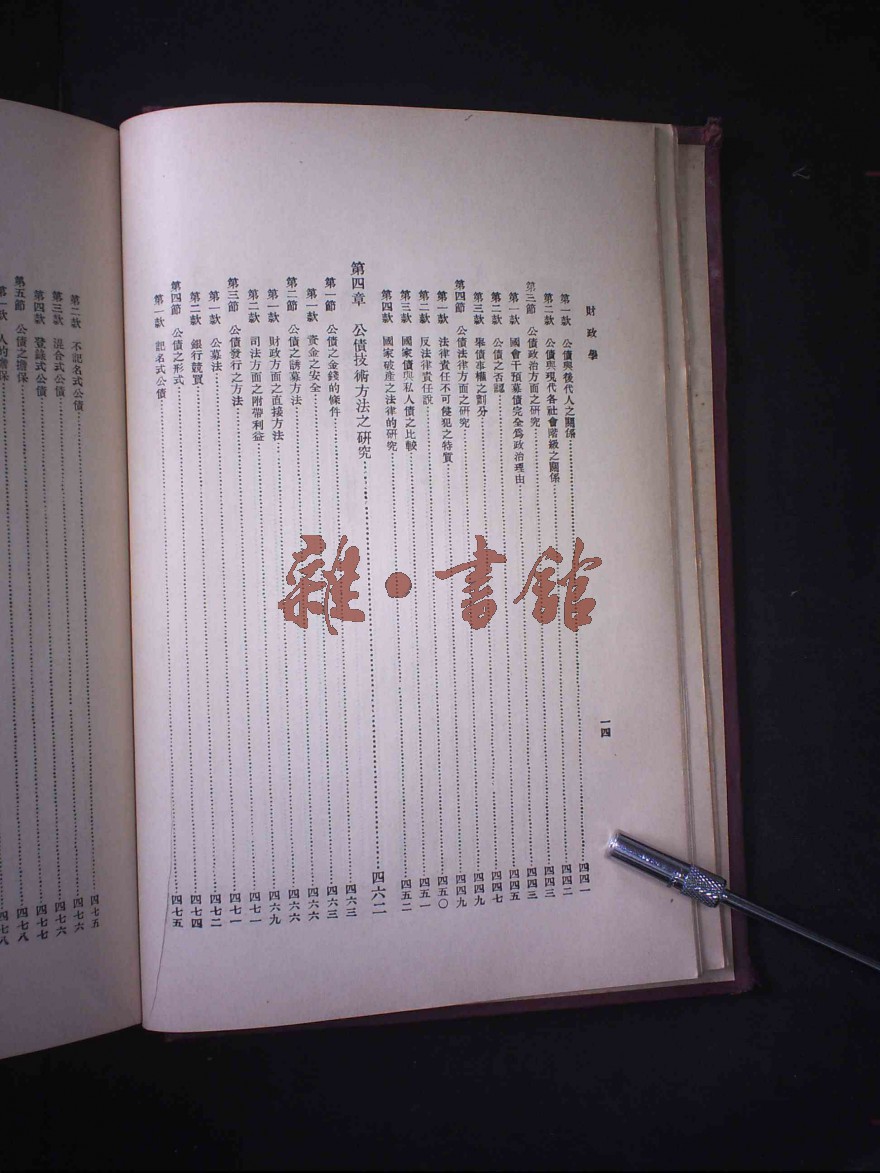 財政學
一四
第一款 公債與後代人之關係……四四一
第二款 公債與現代各社會階級之關係……四四二
第三節 公債政治方面之研究……四四三
第一款 國會干預募債完全爲政治理由……四四三
第二款 公債之否認……四四五
第三款 舉債事權之劃分……四四七
第四節 公債法律方面之研究……四四九
第一款 法律責任不可侵犯之特質……四四九
第二款 反法律責任說……四五〇
第三款 國家債與私人債之比較……四五一
第四款 國家破產之法律的研究……四五二
第四章 公債技術方法之研究……四六二
第一節 公債之金錢的條件……四六三
第一款 資金之安全……四六三
第二節 公債之誘募方法……四六六
第一款 財政方面之直接方法……四六六
第二款 司法方面之附帶利益……四六九
第三節 公債發行之方法……四七一
第一款 公募法……四七一
第二款 銀行競買……四七二
第四節 公債之形式……四七四
第一款 記名式公債……四七五
第二款 不記名式公債……四七五
第三款 混合式公債……四七六
第四款 登錄式公債……四七六
第五節 公債之擔保……四七七
第一款 人的擔保……四七八
四七八
雜·書館